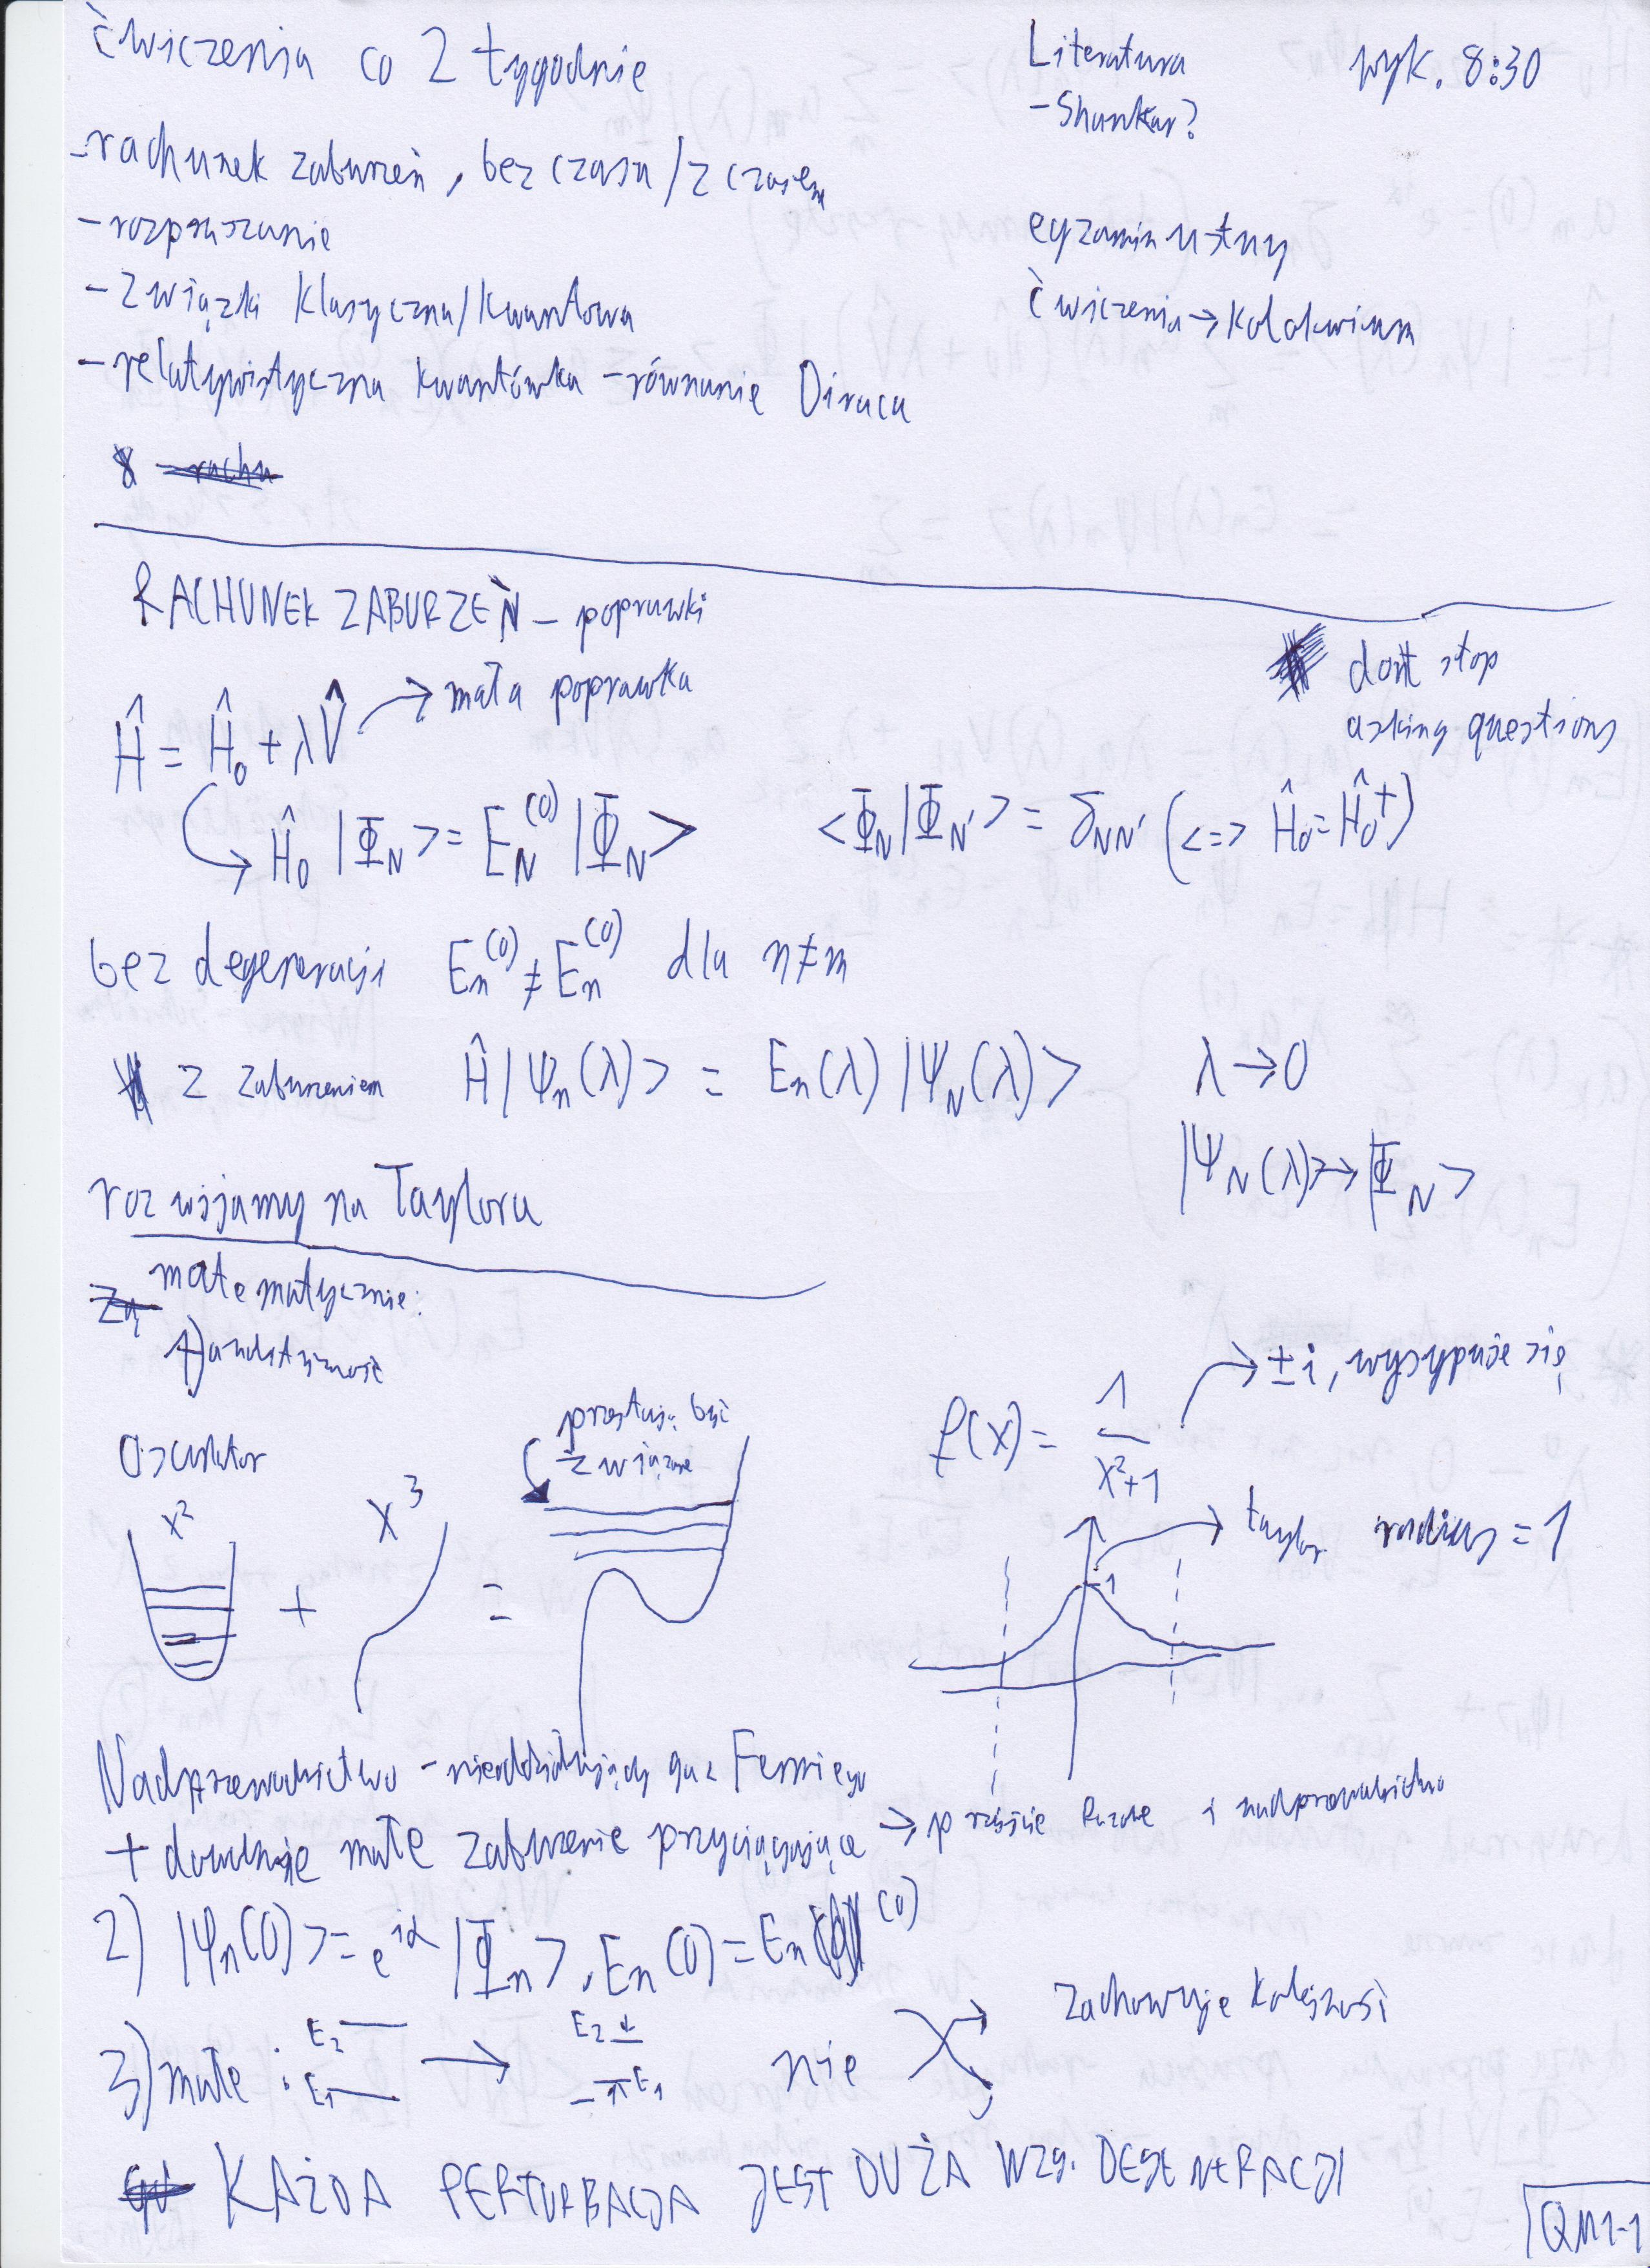 ćwiczenia co 2 tygodnie
Literatura
-Shankar?
wyk. 8:30
-rachunek zaburzeń, bez czasu/z czasem
-rozpraszanie
-związki klasyczna/kwantowa
-relatywistyczna kwantówka -równanie Diraca
egzamin ustny
ćwiczenia → kolokwium
RACHUNEK ZABURZEŃ - poprawki
Ĥ = Ĥ₀ + λV̂ → mała poprawka
dont stop
asking questions
Ĥ₀ |Φ_N> = E_N^(0) |Φ_N> <Φ_N|Φ_N'> = δ_NN' (<=> Ĥ₀ = Ĥ₀⁺)
bez degeneracji E_n^(0) ≠ E_n^(0) dla n≠m
z zaburzeniem Ĥ|Ψ_n(λ)> = E_n(λ) |Ψ_N(λ)> λ→0
|Ψ_N(λ)> → |Φ_N>
rozwijamy na Taylora
matematycznie:
1) analityczność
Oscylator
x² + x³ =
przestają być
związane
f(x) = 1/(x²+1) → ±i, wysypuje się
taylor radius = 1
1
Nadprzewodnictwo - nieoddziałujący gaz Fermiego
+ dowolnie małe zaburzenie przyciągające → przejście fazowe i nadprzewodnictwo
2) |Ψ_n(0)> = e^iα |Φ_n>, E_n(0) = E_n^(0)
3) małe : E₂ E₁ → E₂ E₁ nie zachowuje kolejności
KAŻDA PERTURBACJA JEST DUŻA WZG. DEGENERACJI
QM1-1